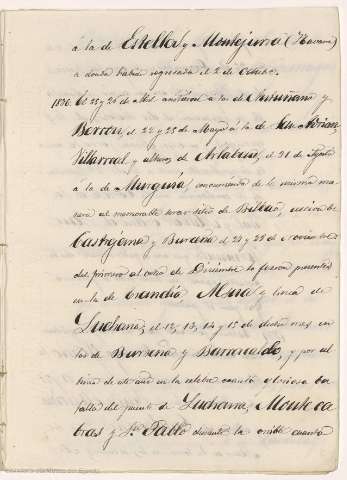 á la de Estella y Montejurra (Navarra)
a donde habia regresado el 2 de Octubre.
1836. El 25 y 26 de Abl. asistieron á la de Amuñain y
Berron, el 22 y 23 de Mayo á la de San Adrian
Villarreal y alturas de Arlaban, el 31 de Agosto
á la de Murguia, concurriendo de la misma ma-
nera al memorable sitio de Bilbao,
Castrejana y Burceña el 23 y 29 de Noviembre
del primero al cinco de Diciembre lo fueron presentes
en la de Erandio Asua y linea de
Luchana, el 12, 13, 14 y 15 de dicho mes en
las de Burcena y Barracaldo, y por ul-
timo de este año en la celebre cuanto gloriosa ba-
talla del puente de Luchana, Monte ca-
bras y Sn. Pablo durante la cruda cuanto